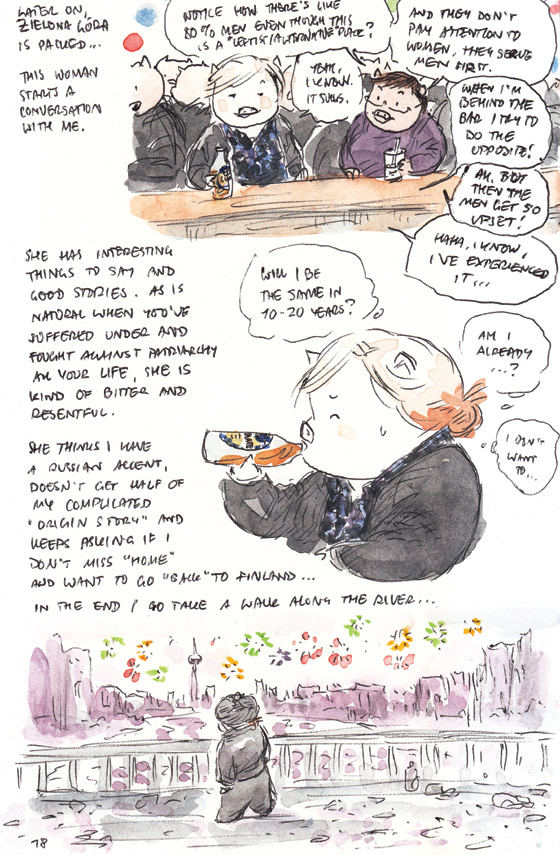 LATER ON,
ZIELONA GÓRA
IS PACKED...
THIS WOMAN
STARTS A
CONVERSATION
WITH ME.
NOTICE HOW THERE'S LIKE
80% MEN EVEN THOUGH THIS
IS A "LEFTIST/ALTERNATIVE" PLACE?
YEAH,
I KNOW.
IT SUCKS.
AND THEY DON'T
PAY ATTENTION TO
WOMEN, THEY SERVE
MEN FIRST.
WHEN I'M
BEHIND THE
BAR I TRY TO
DO THE
OPPOSITE!
AH, BUT
THEN THE
MEN GET SO
UPSET!
HAHA, I KNOW,
I'VE EXPERIENCED
IT...
SHE HAS INTERESTING
THINGS TO SAY AND
GOOD STORIES. AS IS
NATURAL WHEN YOU'VE
SUFFERED UNDER AND
FOUGHT AGAINST PATRIARCHY
ALL YOUR LIFE, SHE IS
KIND OF BITTER AND
RESENTFUL.
WILL I BE
THE SAME IN
10-20 YEARS?
AM I
ALREADY
...?
I DON'T
WANT
TO...
SHE THINKS I HAVE
A RUSSIAN ACCENT,
DOESN'T GET HALF OF
MY COMPLICATED
"ORIGIN STORY" AND
KEEPS ASKING IF I
DON'T MISS "HOME"
AND WANT TO GO "BACK" TO FINLAND...
IN THE END I GO TAKE A WALK ALONG THE RIVER...
78